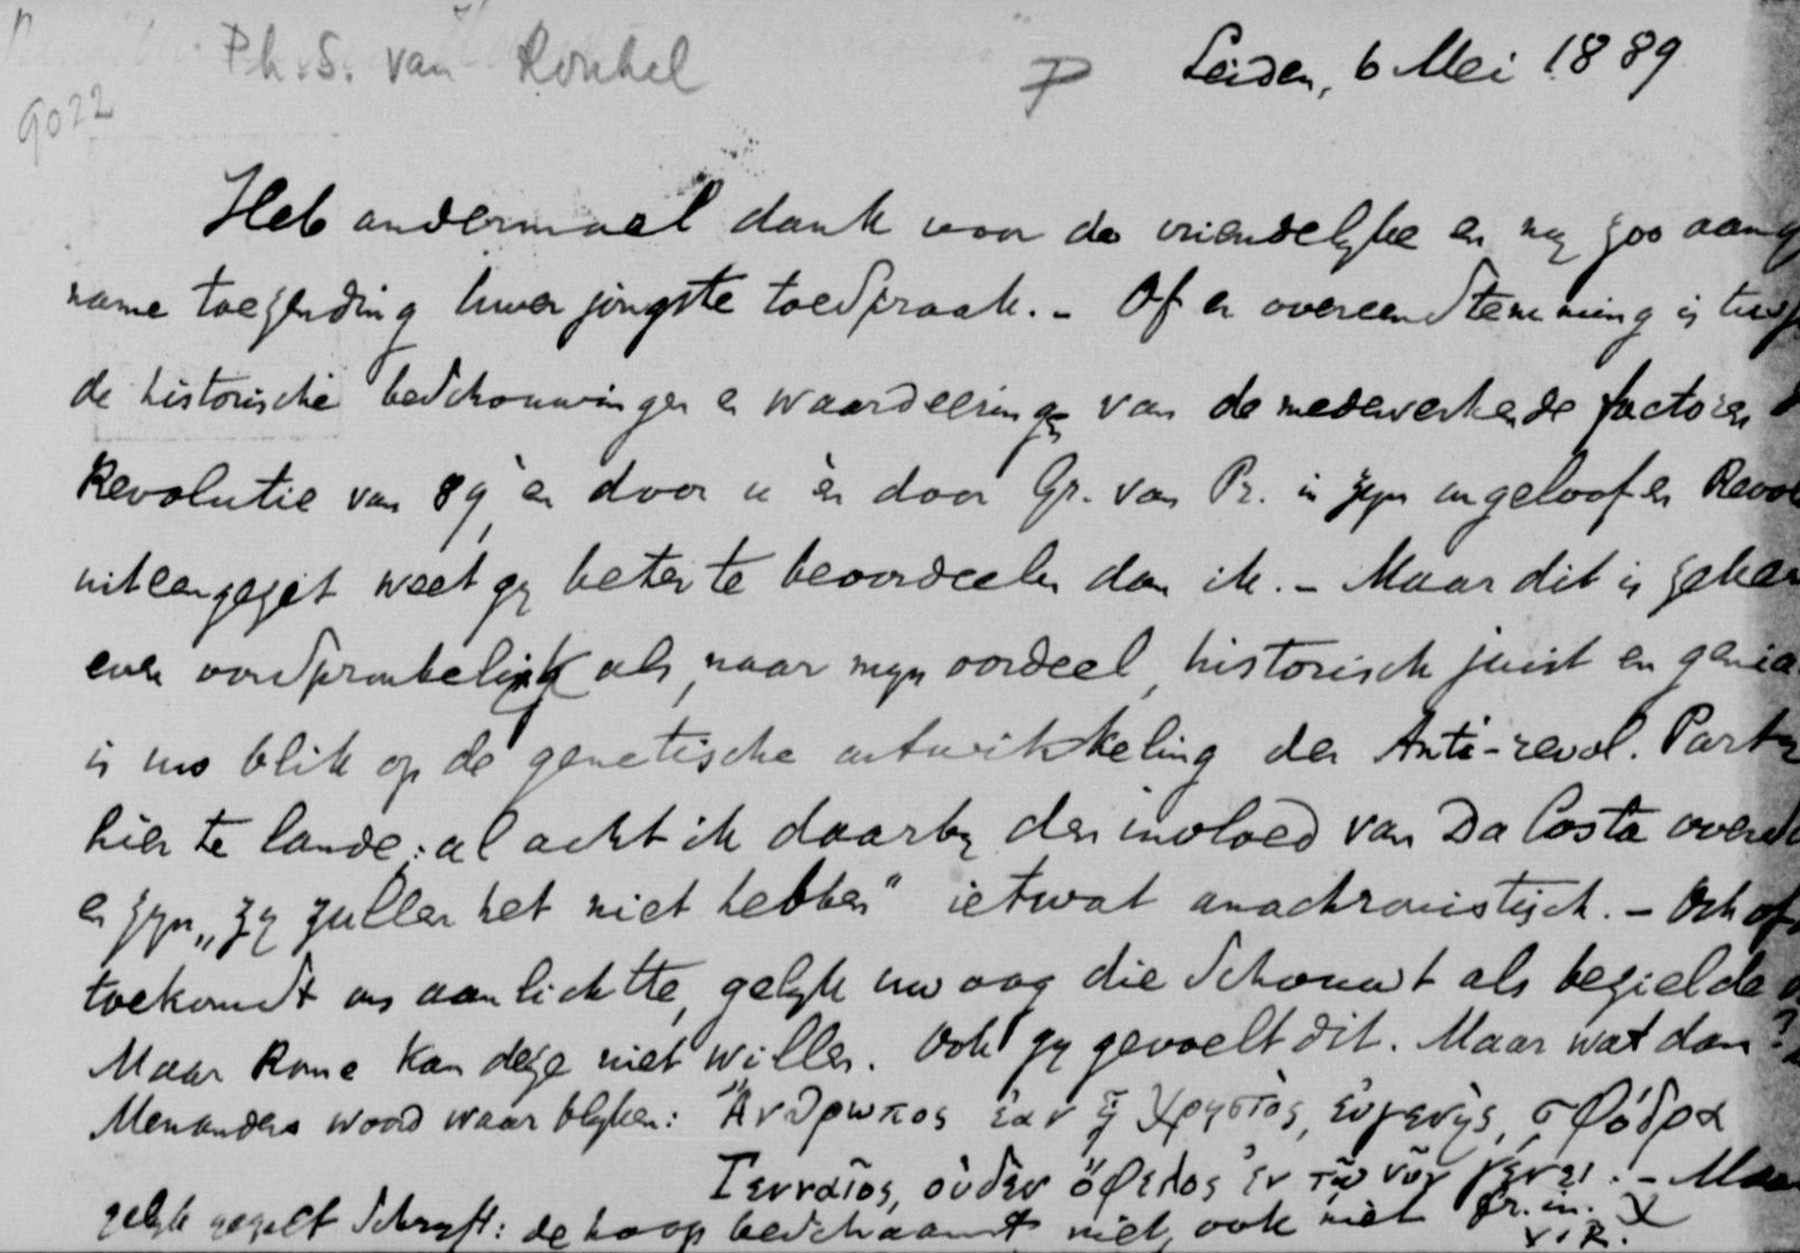 Ph. S. van Ronkel
P
Leiden, 6 Mei 1889
9022
Heb andermaal dank voor de vriendelyke en my zoo aang
name toezending Uwer jongste toespraak. - Of er overeenstemming is tus
de historische beschouwingen en waardeeringen van de medewerkende factoren d
Revolutie van 89, èn door u èn door Gr. van Pr. in zyn ongeloof en Revol
uiteengezet weet gy beter te beoordeelen dan ik. - Maar dit is zeker
even oorspronkelijk als, naar myn oordeel, historisch juist en genia
is uw blik op de genetische ontwikkeling der Anti-revol. Party
hier te lande; al acht ik daarby den invloed van Da Costa
en zyn „zy zullen het niet hebben" ietwat anachronistisch. - Och of
toekomst ons aanlichtte, gelyk uw oog die schouwt als bezielde
Maar Rome kan deze niet willen. Ook gy gevoelt dit. Maar wat dan?
Menanders woord waar blyken: Ἄνθρωπος ἐὰν ᾖ χρηστὸς, εὐγενὴς, σφόδρα
Γενναῖος, οὐδὲν ὄφελος ἐν τῷ νῦν γένει. - Maar
gelyk de Schryft: de hoop beschaamt niet, ook niet
v. R.